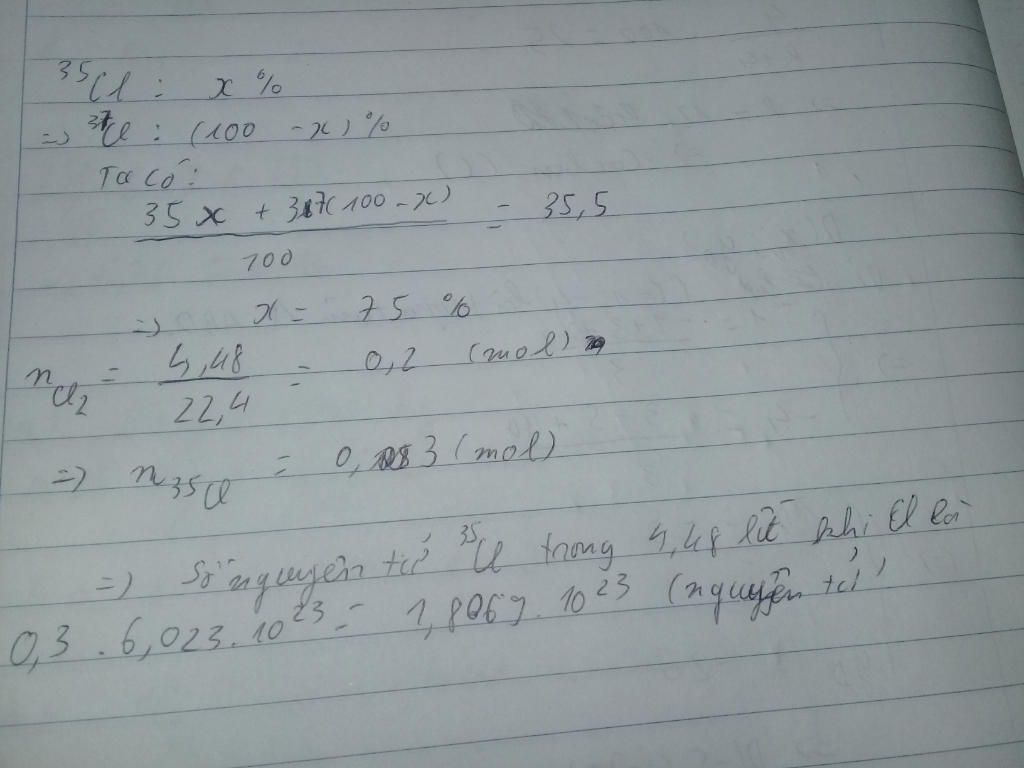 ³⁵Cl : x %
=> ³⁷Cl : (100 - x) %
Ta có :
35x + 37(100 - x) / 100 = 35,5
=> x = 75 %
n Cl₂ = 4,48 / 22,4 = 0,2 (mol)
=> n ³⁵Cl = 0,3 (mol)
=> Số nguyên tử ³⁵Cl trong 4,48 lít khí Cl là
0,3 . 6,023 . 10²³ = 1,8069 . 10²³ (nguyên tử)